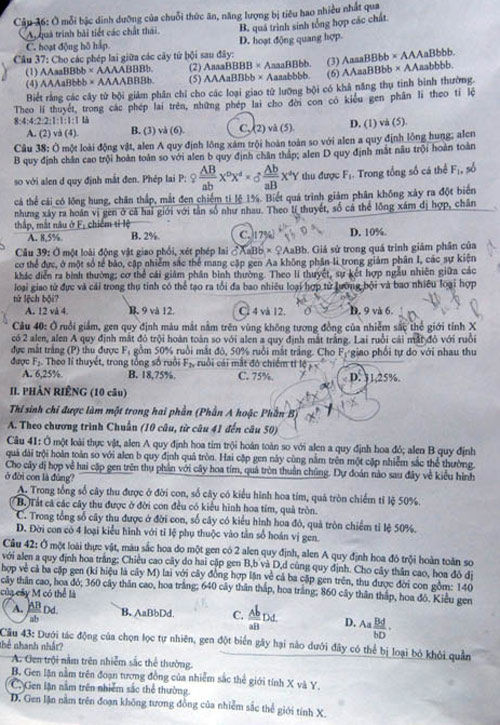 Câu 36: Ở mỗi bậc dinh dưỡng của chuỗi thức ăn, năng lượng bị tiêu hao nhiều nhất qua
A. quá trình bài tiết các chất thải. B. quá trình sinh tổng hợp các chất.
C. hoạt động hô hấp. D. hoạt động quang hợp.
Câu 37: Cho các phép lai giữa các cây tứ bội sau đây:
(1) AAaaBBbb × AAAABBBb. (2) AaaaBBBB × AaaaBBbb. (3) AaaaBBbb × AAAaBbbb.
(4) AAAaBbbb × AAAABBBb. (5) AAAaBBbb × Aaaabbbb. (6) AAaaBBbb × AAaabbbb.
Biết rằng các cây tứ bội giảm phân chỉ cho các loại giao tử lưỡng bội có khả năng thụ tinh bình thường.
Theo lí thuyết, trong các phép lai trên, những phép lai cho đời con có kiểu gen phân li theo tỉ lệ
8:4:4:2:2:1:1:1:1 là
A. (2) và (4). B. (3) và (6). C. (2) và (5). D. (1) và (5).
Câu 38: Ở một loài động vật, alen A quy định lông xám trội hoàn toàn so với alen a quy định lông hung; alen
B quy định chân cao trội hoàn toàn so với alen b quy định chân thấp; alen D quy định mắt nâu trội hoàn toàn
so với alen d quy định mắt đen. Phép lai P: ♀ AB/ab XᴰXᵈ × ♂ Ab/aB XᵈY thu được F₁. Trong tổng số cá thể F₁, số
cá thể cái có lông hung, chân thấp, mắt đen chiếm tỉ lệ 1%. Biết quá trình giảm phân không xảy ra đột biến
nhưng xảy ra hoán vị gen ở cả hai giới với tần số như nhau. Theo lí thuyết, số cá thể lông xám dị hợp, chân
thấp, mắt nâu ở F₁ chiếm tỉ lệ
A. 8,5%. B. 2%. C. 17%. D. 10%.
Câu 39: Ở một loài động vật giao phối, xét phép lai ♂AaBb × ♀AaBb. Giả sử trong quá trình giảm phân của
cơ thể đực, ở một số tế bào, cặp nhiễm sắc thể mang cặp gen Aa không phân li trong giảm phân I, các sự kiện
khác diễn ra bình thường; cơ thể cái giảm phân bình thường. Theo lí thuyết, sự kết hợp ngẫu nhiên giữa các
loại giao tử đực và cái trong thụ tinh có thể tạo ra tối đa bao nhiêu loại hợp tử lưỡng bội và bao nhiêu loại hợp
tử lệch bội?
A. 12 và 4. B. 9 và 12. C. 4 và 12. D. 9 và 6.
Câu 40: Ở ruồi giấm, gen quy định màu mắt nằm trên vùng không tương đồng của nhiễm sắc thể giới tính X
có 2 alen, alen A quy định mắt đỏ trội hoàn toàn so với alen a quy định mắt trắng. Lai ruồi cái mắt đỏ với ruồi
đực mắt trắng (P) thu được F₁ gồm 50% ruồi mắt đỏ, 50% ruồi mắt trắng. Cho F₁ giao phối tự do với nhau thu
được F₂. Theo lí thuyết, trong tổng số ruồi F₂, ruồi cái mắt đỏ chiếm tỉ lệ
A. 6,25%. B. 18,75%. C. 75%. D. 31,25%.
II. PHẦN RIÊNG (10 câu)
Thí sinh chỉ được làm một trong hai phần (Phần A hoặc Phần B)
A. Theo chương trình Chuẩn (10 câu, từ câu 41 đến câu 50)
Câu 41: Ở một loài thực vật, alen A quy định hoa tím trội hoàn toàn so với alen a quy định hoa đỏ; alen B quy định
quả dài trội hoàn toàn so với alen b quy định quả tròn. Hai cặp gen này cùng nằm trên một cặp nhiễm sắc thể thường.
Cho cây dị hợp về hai cặp gen trên thụ phấn với cây hoa tím, quả tròn thuần chủng. Dự đoán nào sau đây về kiểu hình
ở đời con là đúng?
A. Trong tổng số cây thu được ở đời con, số cây có kiểu hình hoa tím, quả tròn chiếm tỉ lệ 50%.
B. Tất cả các cây thu được ở đời con đều có kiểu hình hoa tím, quả tròn.
C. Trong tổng số cây thu được ở đời con, số cây có kiểu hình hoa đỏ, quả tròn chiếm tỉ lệ 50%.
D. Đời con có 4 loại kiểu hình với tỉ lệ phụ thuộc vào tần số hoán vị gen.
Câu 42: Ở một loài thực vật, màu sắc hoa do một gen có 2 alen quy định, alen A quy định hoa đỏ trội hoàn toàn so
với alen a quy định hoa trắng; Chiều cao cây do hai cặp gen B,b và D,d cùng quy định. Cho cây thân cao, hoa đỏ dị
hợp về cả ba cặp gen (kí hiệu là cây M) lai với cây đồng hợp lặn về cả ba cặp gen trên, thu được đời con gồm: 140
cây thân cao, hoa đỏ; 360 cây thân cao, hoa trắng; 640 cây thân thấp, hoa trắng; 860 cây thân thấp, hoa đỏ. Kiểu gen
của cây M có thể là
A. AB/ab Dd. B. AaBbDd. C. Ab/aB Dd. D. Aa Bd/bD.
Câu 43: Dưới tác động của chọn lọc tự nhiên, gen đột biến gây hại nào dưới đây có thể bị loại bỏ khỏi quần
thể nhanh nhất?
A. Gen trội nằm trên nhiễm sắc thể thường.
B. Gen lặn nằm trên đoạn tương đồng của nhiễm sắc thể giới tính X và Y.
C. Gen lặn nằm trên nhiễm sắc thể thường.
D. Gen lặn nằm trên đoạn không tương đồng của nhiễm sắc thể giới tính X.